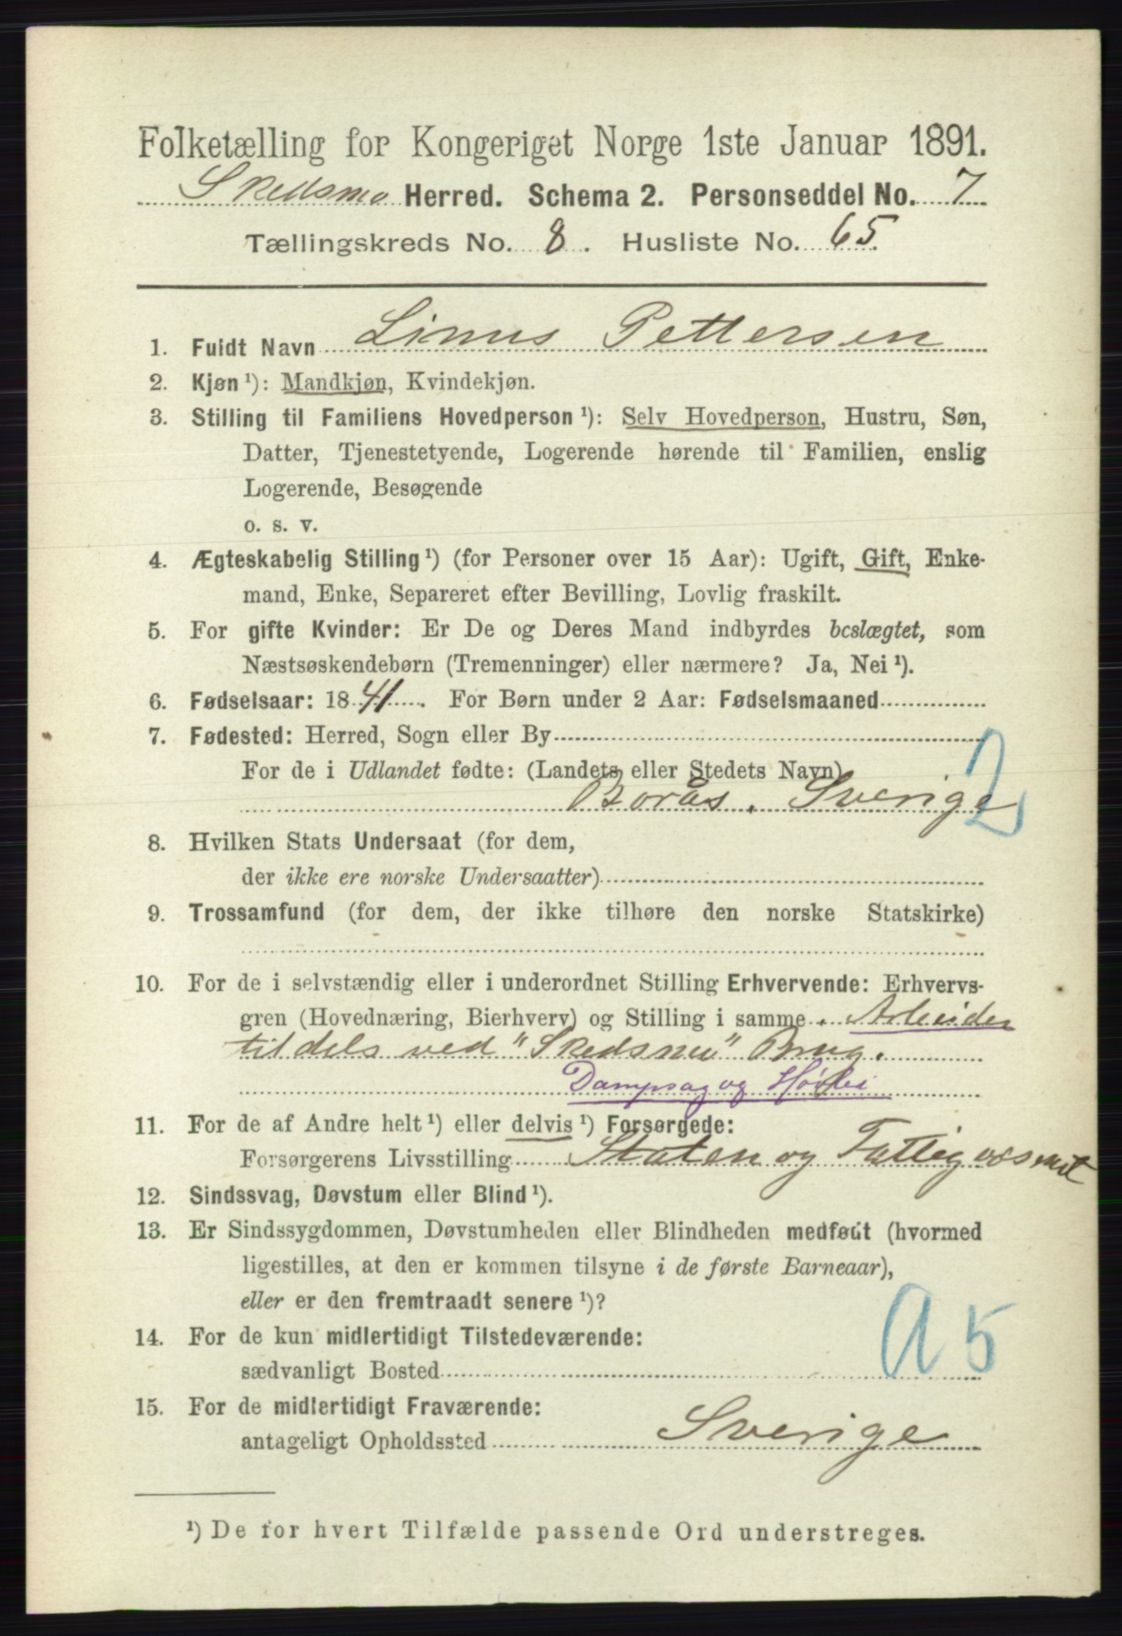 Folketælling for Kongeriget Norge 1ste Januar 1891.
Skedsmo Herred. Schema 2. Personseddel No. 7
Tællingskreds No. 8. Husliste No. 65.
1. Fuldt Navn Linus Pettersen
2. Kjøn ¹): Mandkjøn, Kvindekjøn.
3. Stilling til Familiens Hovedperson ¹): Selv Hovedperson, Hustru, Søn,
Datter, Tjenestetyende, Logerende hørende til Familien, enslig
Logerende, Besøgende
o. s. v.
4. Ægteskabelig Stilling ¹) (for Personer over 15 Aar): Ugift, Gift, Enke-
mand, Enke, Separeret efter Bevilling, Lovlig fraskilt.
5. For gifte Kvinder: Er De og Deres Mand indbyrdes beslægtet, som
Næstsøskendebørn (Tremenninger) eller nærmere? Ja, Nei ¹).
6. Fødselsaar: 1841. For Børn under 2 Aar: Fødselsmaaned
7. Fødested: Herred, Sogn eller By
For de i Udlandet fødte: (Landets eller Stedets Navn)
Borås. Sverige 2
8. Hvilken Stats Undersaat (for dem,
der ikke ere norske Undersaatter)
9. Trossamfund (for dem, der ikke tilhøre den norske Statskirke)
10. For de i selvstændig eller i underordnet Stilling Erhvervende: Erhvervs-
gren (Hovednæring, Bierhverv) og Stilling i samme. Arbeider
tildels ved "Skedsmo" Brug.
Dampsag og Høvleri
11. For de af Andre helt ¹) eller delvis ¹) Forsørgede:
Forsørgerens Livsstilling Staten og Fattigvæsenet
12. Sindssvag, Døvstum eller Blind ¹).
13. Er Sindssygdommen, Døvstumheden eller Blindheden medfødt (hvormed
ligestilles, at den er kommen tilsyne i de første Barneaar),
eller er den fremtraadt senere ¹)?
14. For de kun midlertidigt Tilstedeværende:
sædvanligt Bosted
A 5
15. For de midlertidigt Fraværende:
antageligt Opholdssted Sverige
¹) De for hvert Tilfælde passende Ord understreges.